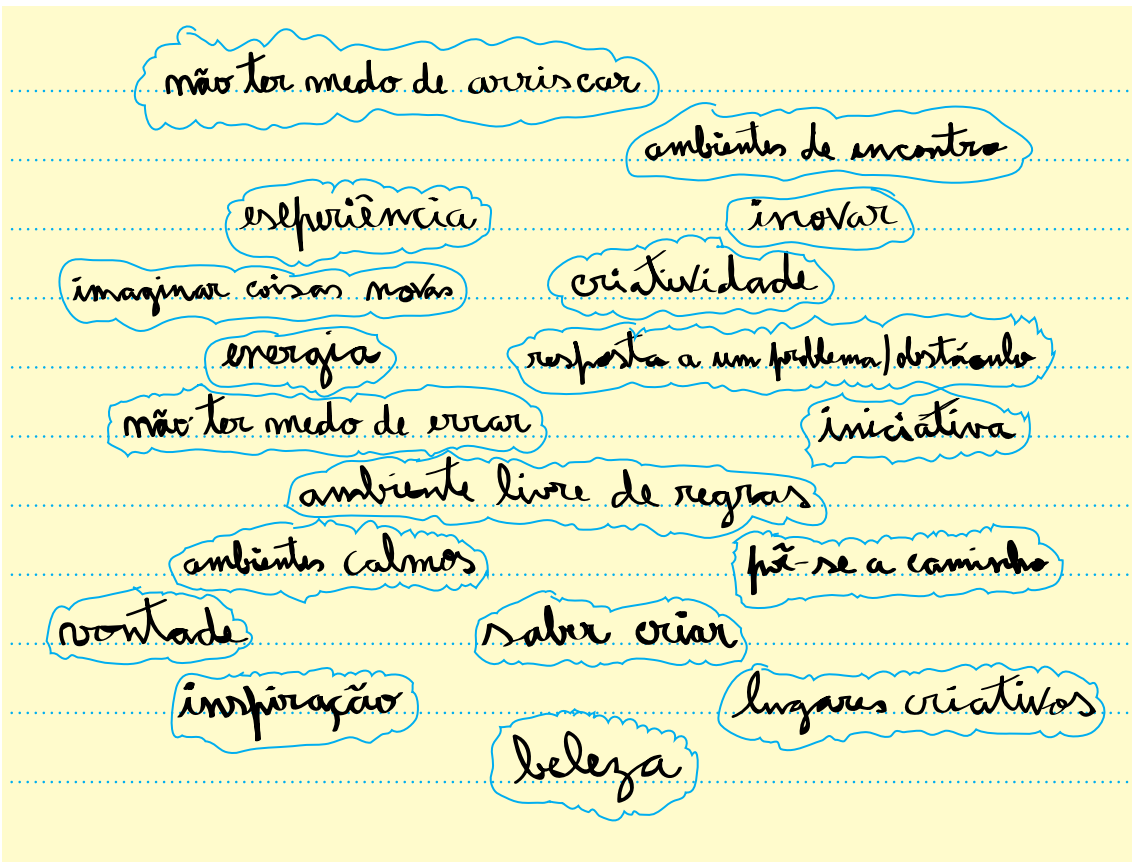 não ter medo de arriscar
ambientes de encontro
experiência
inovar
imaginar coisas novas
criatividade
energia
resposta a um problema/obstáculo
não ter medo de errar
iniciativa
ambiente livre de regras
ambientes calmos
põ-se a caminho
vontade
saber criar
inspiração
lugares criativos
beleza